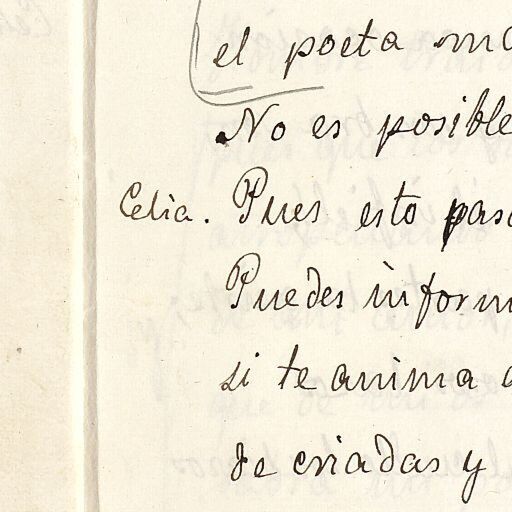 el poeta
No es posible
Celia. Pues esto pasa
Puedes inform
si te anima a
de criadas y